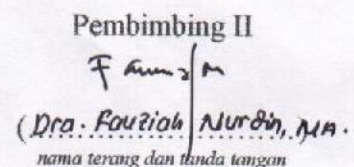 Pembimbing II
(Dra. Fauziah Nurdin, MA.
nama terang dan tanda tangan